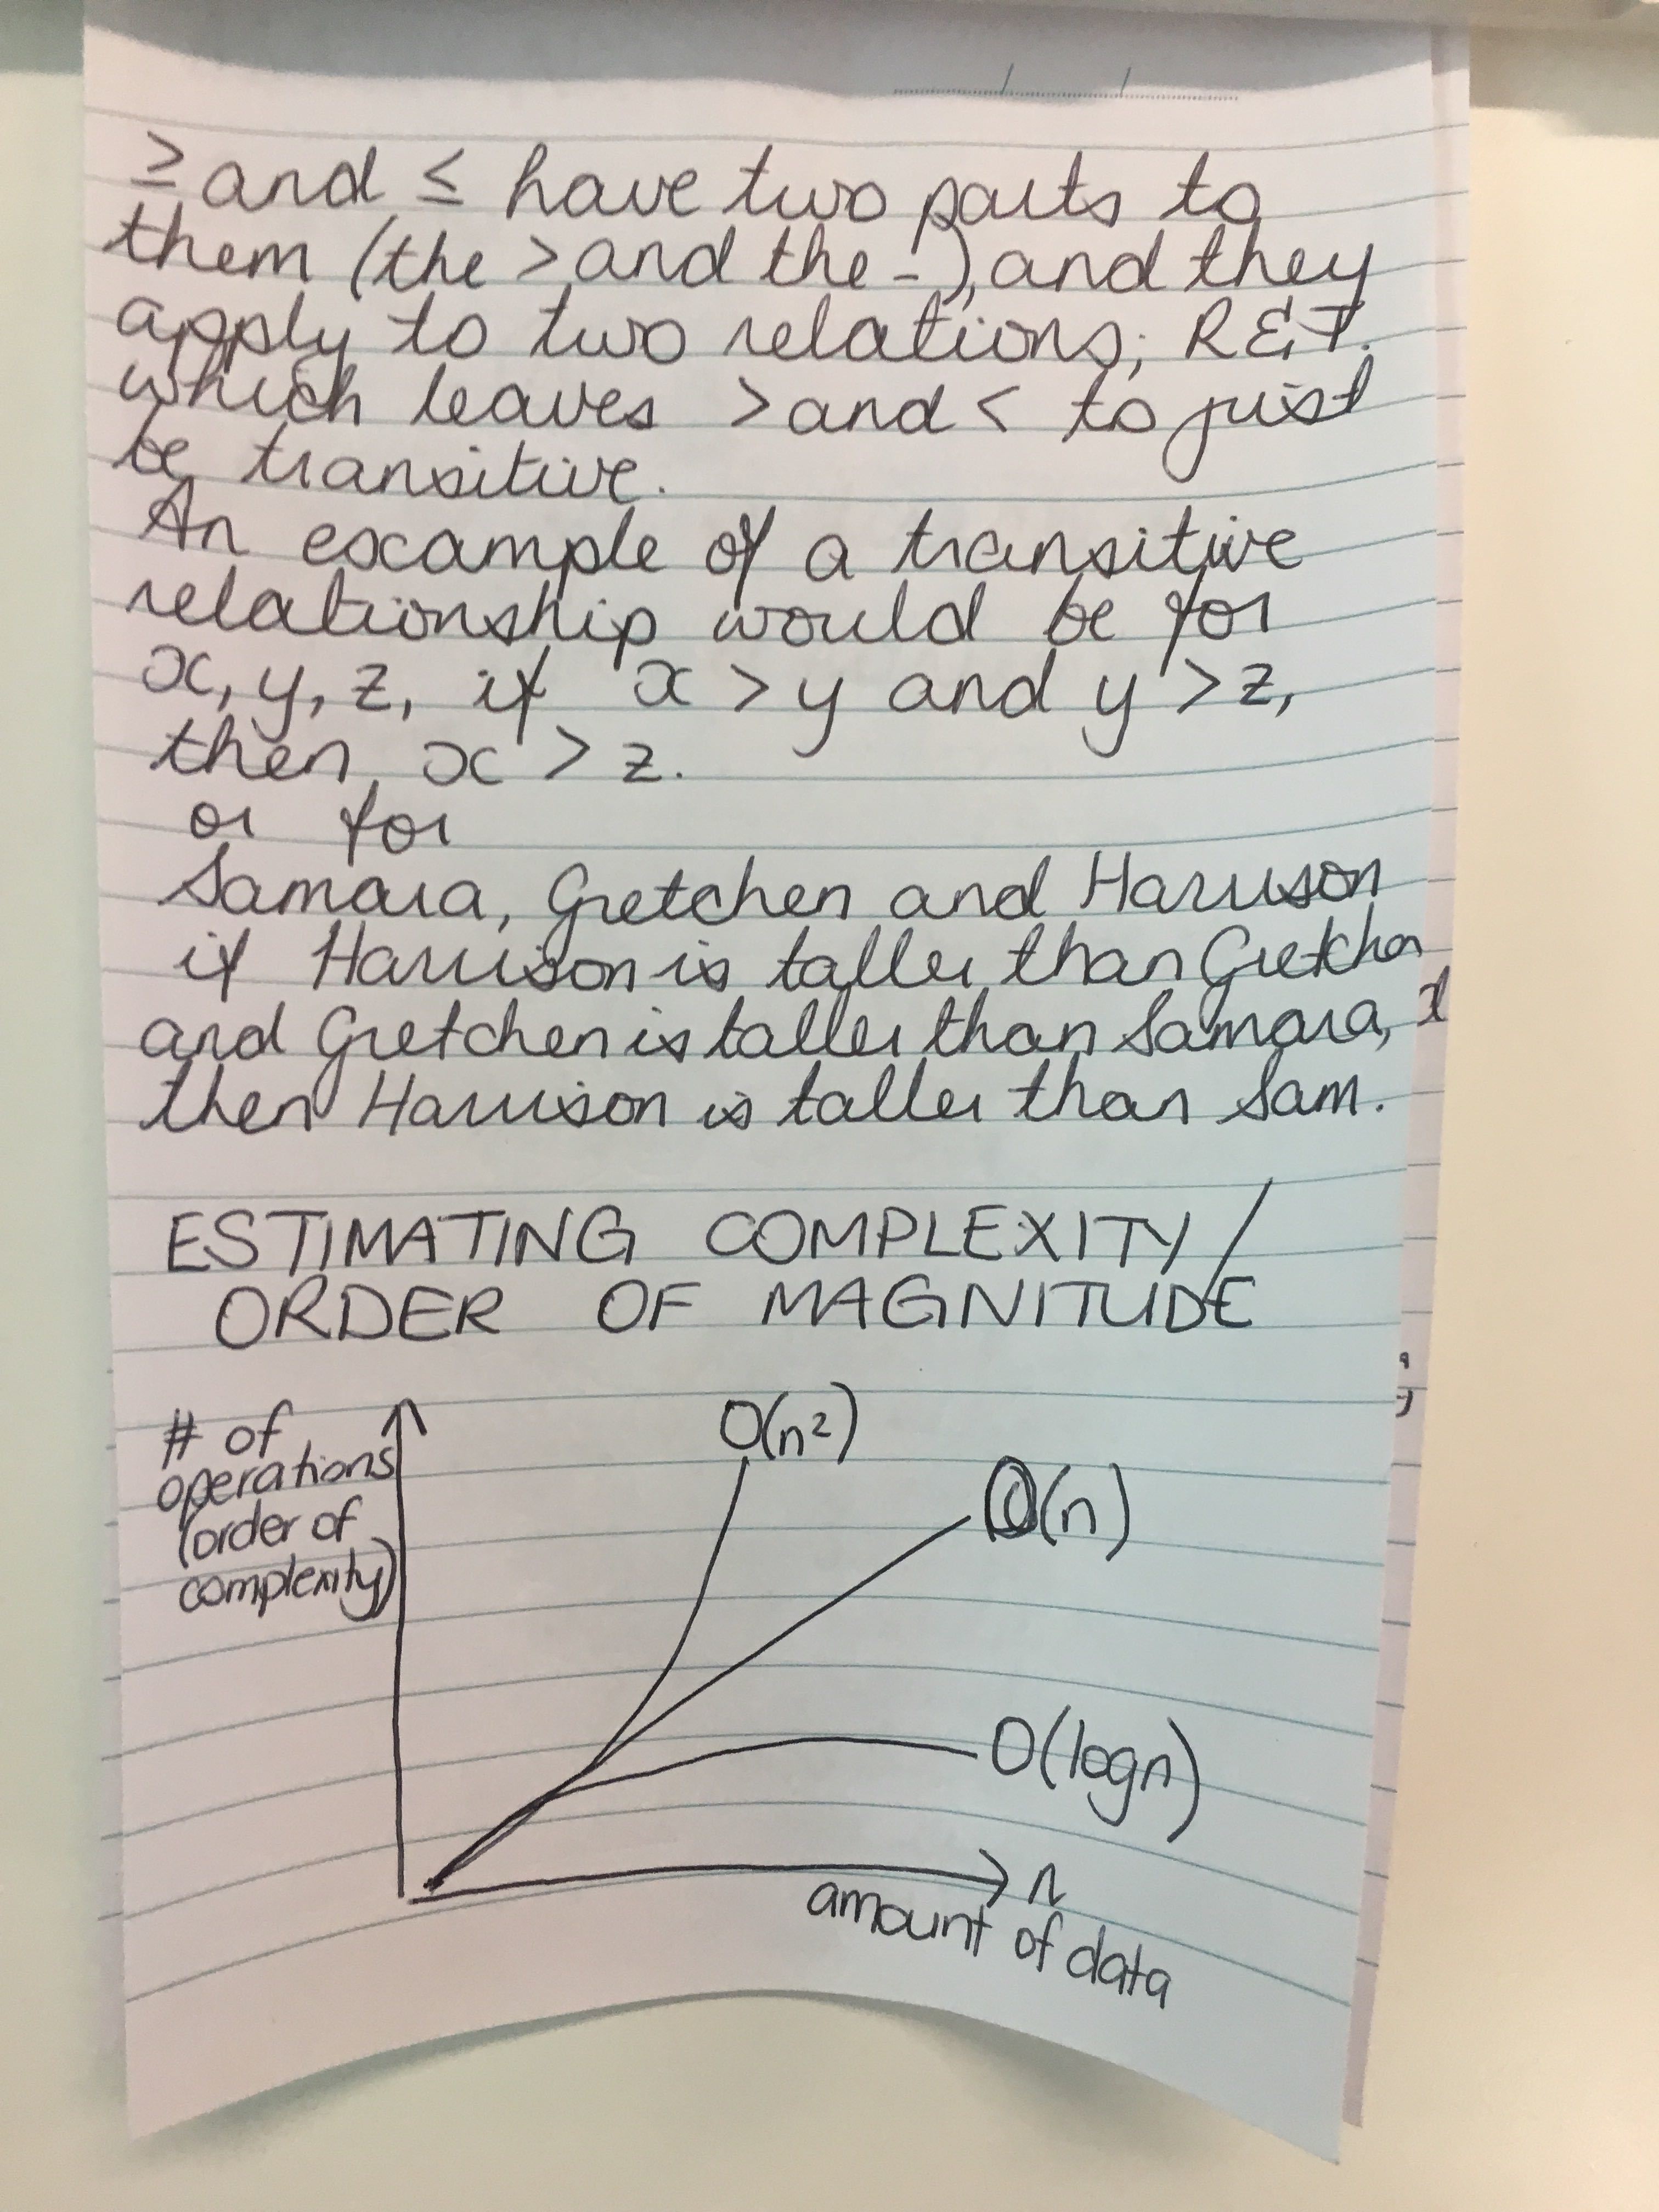 ≥ and ≤ have two parts to
them (the > and the -), and they
apply to two relations; R & T.
which leaves > and < to just
be transitive.
An example of a transitive
relationship would be for
x, y, z, if x > y and y > z,
then x > z.
or for
Samara, Gretchen and Harrison
if Harrison is taller than Gretchen
and Gretchen is taller than Samara,
then Harrison is taller than Sam.
ESTIMATING COMPLEXITY /
ORDER OF MAGNITUDE
# of
operations
(order of
complexity)
O(n²)
O(n)
O(logn)
n
amount of data